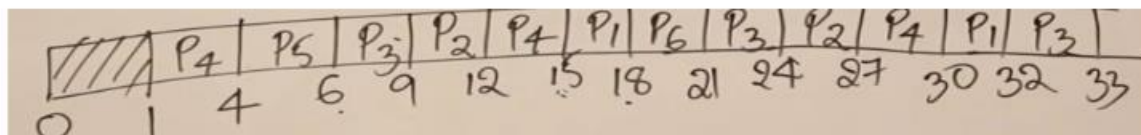 P4 P5 P3 P2 P4 P1 P6 P3 P2 P4 P1 P3
0 1 4 6 9 12 15 18 21 24 27 30 32 33